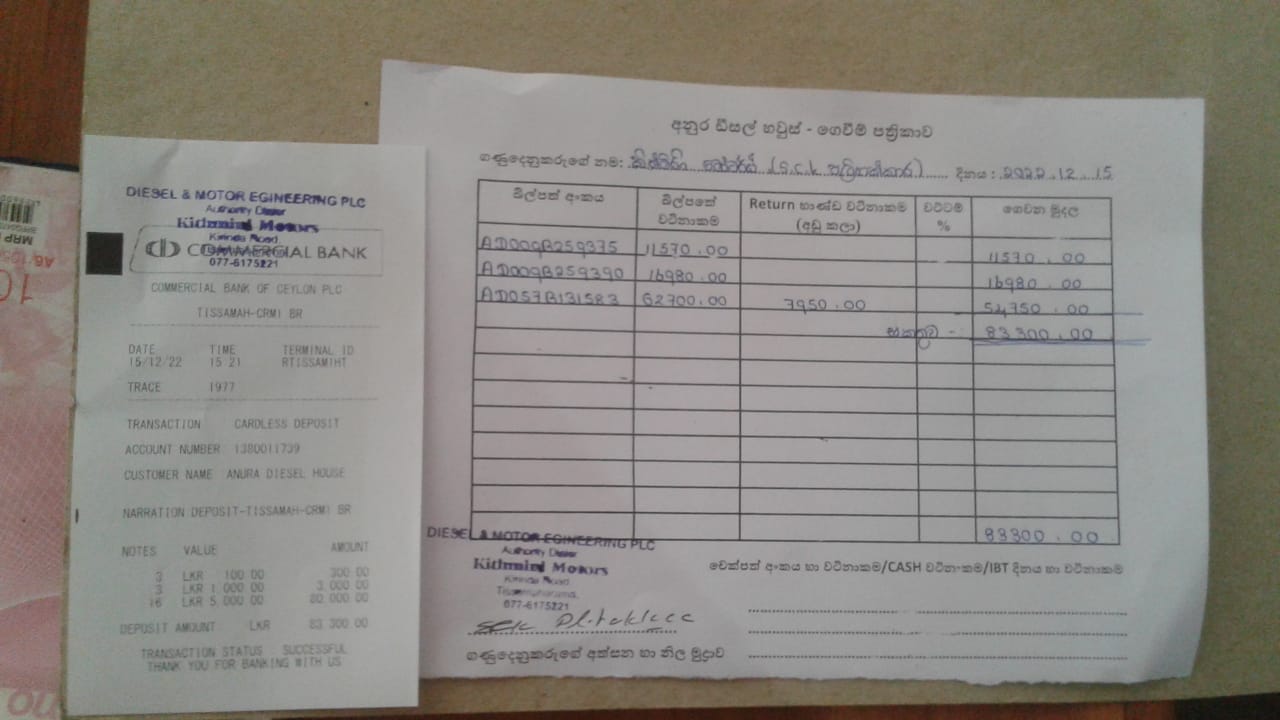 DIESEL & MOTOR EGINEERING PLC
Authority Dealer
Kithmini Motors
Kirinda Road,
077-6175221
COMMERCIAL BANK
COMMERCIAL BANK OF CEYLON PLC
TISSAMAH-CRM1 BR
DATE TIME TERMINAL ID
15/12/22 15:21 RTISSAM1HT
TRACE 1977
TRANSACTION CARDLESS DEPOSIT
ACCOUNT NUMBER 1380011739
CUSTOMER NAME ANURA DIESEL HOUSE
NARRATION DEPOSIT-TISSAMAH-CRM1 BR
NOTES VALUE AMOUNT
3 LKR 100.00 300.00
3 LKR 1,000.00 3,000.00
16 LKR 5,000.00 80,000.00
DEPOSIT AMOUNT LKR 83,300.00
TRANSACTION STATUS SUCCESSFUL
THANK YOU FOR BANKING WITH US
අනුර ඩීසල් හවුස් - ගෙවීම් පත්‍රිකාව
ගණුදෙනුකරුගේ නම: (S.C.L දිනය : 2022.12.15
බිල්පත් අංකය බිල්පතේ වටිනාකම Return භාණ්ඩ වටිනාකම (අඩු කලා) වට්ටම් % ගෙවන මුදල
AD009B259375 11570.00 11570.00
AD009B259390 16980.00 16980.00
AD057B131583 62700.00 7950.00 54,750.00
එකතුව - 83300.00
83300.00
DIESEL & MOTOR EGINEERING PLC
Authority Dealer
Kithmini Motors
Kirinda Road,
Tissamaharama.
077-6175221
චෙක්පත් අංකය හා වටිනාකම/CASH වටිනාකම/IBT දිනය හා වටිනාකම
ගණුදෙනුකරුගේ අත්සන හා නිල මුද්‍රාව
MRP
10